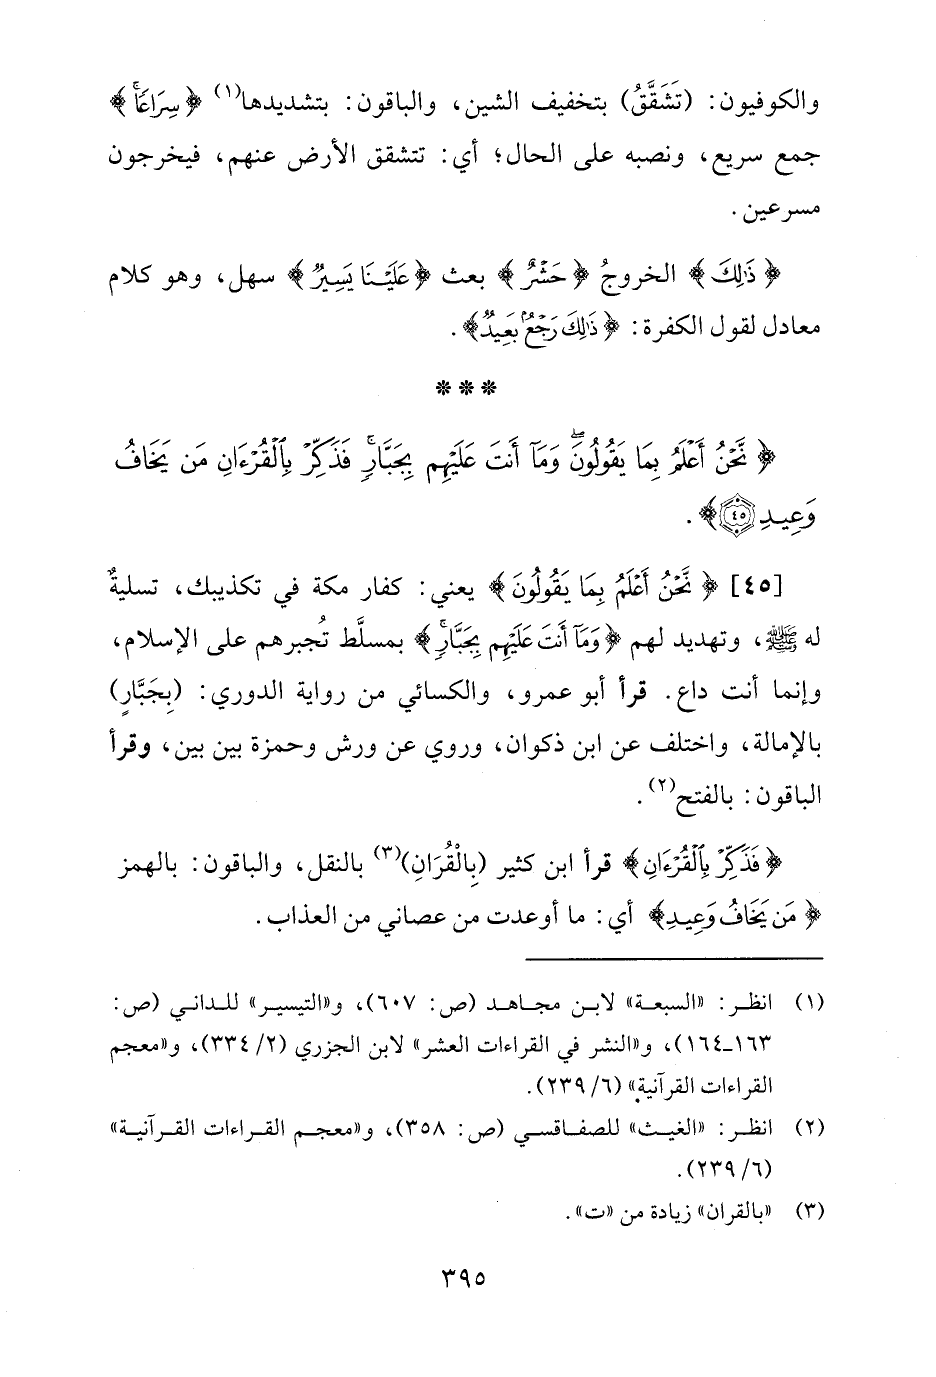 والكوفيون: (تَشَقَّقُ) بتخفيف الشين، والباقون: بتشديدها(١) ﴿سِرَاعًا﴾
جمع سريع، ونصبه على الحال؛ أي: تتشقق الأرض عنهم، فيخرجون
مسرعين.
﴿ذَٰلِكَ﴾ الخروجُ ﴿حَشْرٌ﴾ بعث ﴿عَلَيْنَا يَسِيرٌ﴾ سهل، وهو كلام
معادل لقول الكفرة: ﴿ذَٰلِكَ رَجْعٌ بَعِيدٌ﴾.
***
﴿نَّحْنُ أَعْلَمُ بِمَا يَقُولُونَ ۖ وَمَا أَنتَ عَلَيْهِم بِجَبَّارٍ ۖ فَذَكِّرْ بِالْقُرْءَانِ مَن يَخَافُ
وَعِيدِ ٤٥﴾.
[٤٥] ﴿نَّحْنُ أَعْلَمُ بِمَا يَقُولُونَ﴾ يعني: كفار مكة في تكذيبك، تسليةٌ
له ﷺ، وتهديد لهم ﴿وَمَا أَنتَ عَلَيْهِم بِجَبَّارٍ﴾ بمسلَّط تُجبرهم على الإسلام،
وإنما أنت داع. قرأ أبو عمرو، والكسائي من رواية الدوري: (بِجَبَّارٍ)
بالإمالة، واختلف عن ابن ذكوان، وروي عن ورش وحمزة بين بين، وقرأ
الباقون: بالفتح(٢).
﴿فَذَكِّرْ بِالْقُرْءَانِ﴾ قرأ ابن كثير (بِالْقُرَانِ)(٣) بالنقل، والباقون: بالهمز
﴿مَن يَخَافُ وَعِيدِ﴾ أي: ما أوعدت من عصاني من العذاب.
(١) انظر: «السبعة» لابن مجاهد (ص: ٦٠٧)، و«التيسير» للداني (ص:
١٦٣-١٦٤)، و«النشر في القراءات العشر» لابن الجزري (٢/ ٣٣٤)، و«معجم
القراءات القرآنية» (٦/ ٢٣٩).
(٢) انظر: «الغيث» للصفاقسي (ص: ٣٥٨)، و«معجم القراءات القرآنية»
(٦/ ٢٣٩).
(٣) «بالقران» زيادة من «ت».
٣٩٥